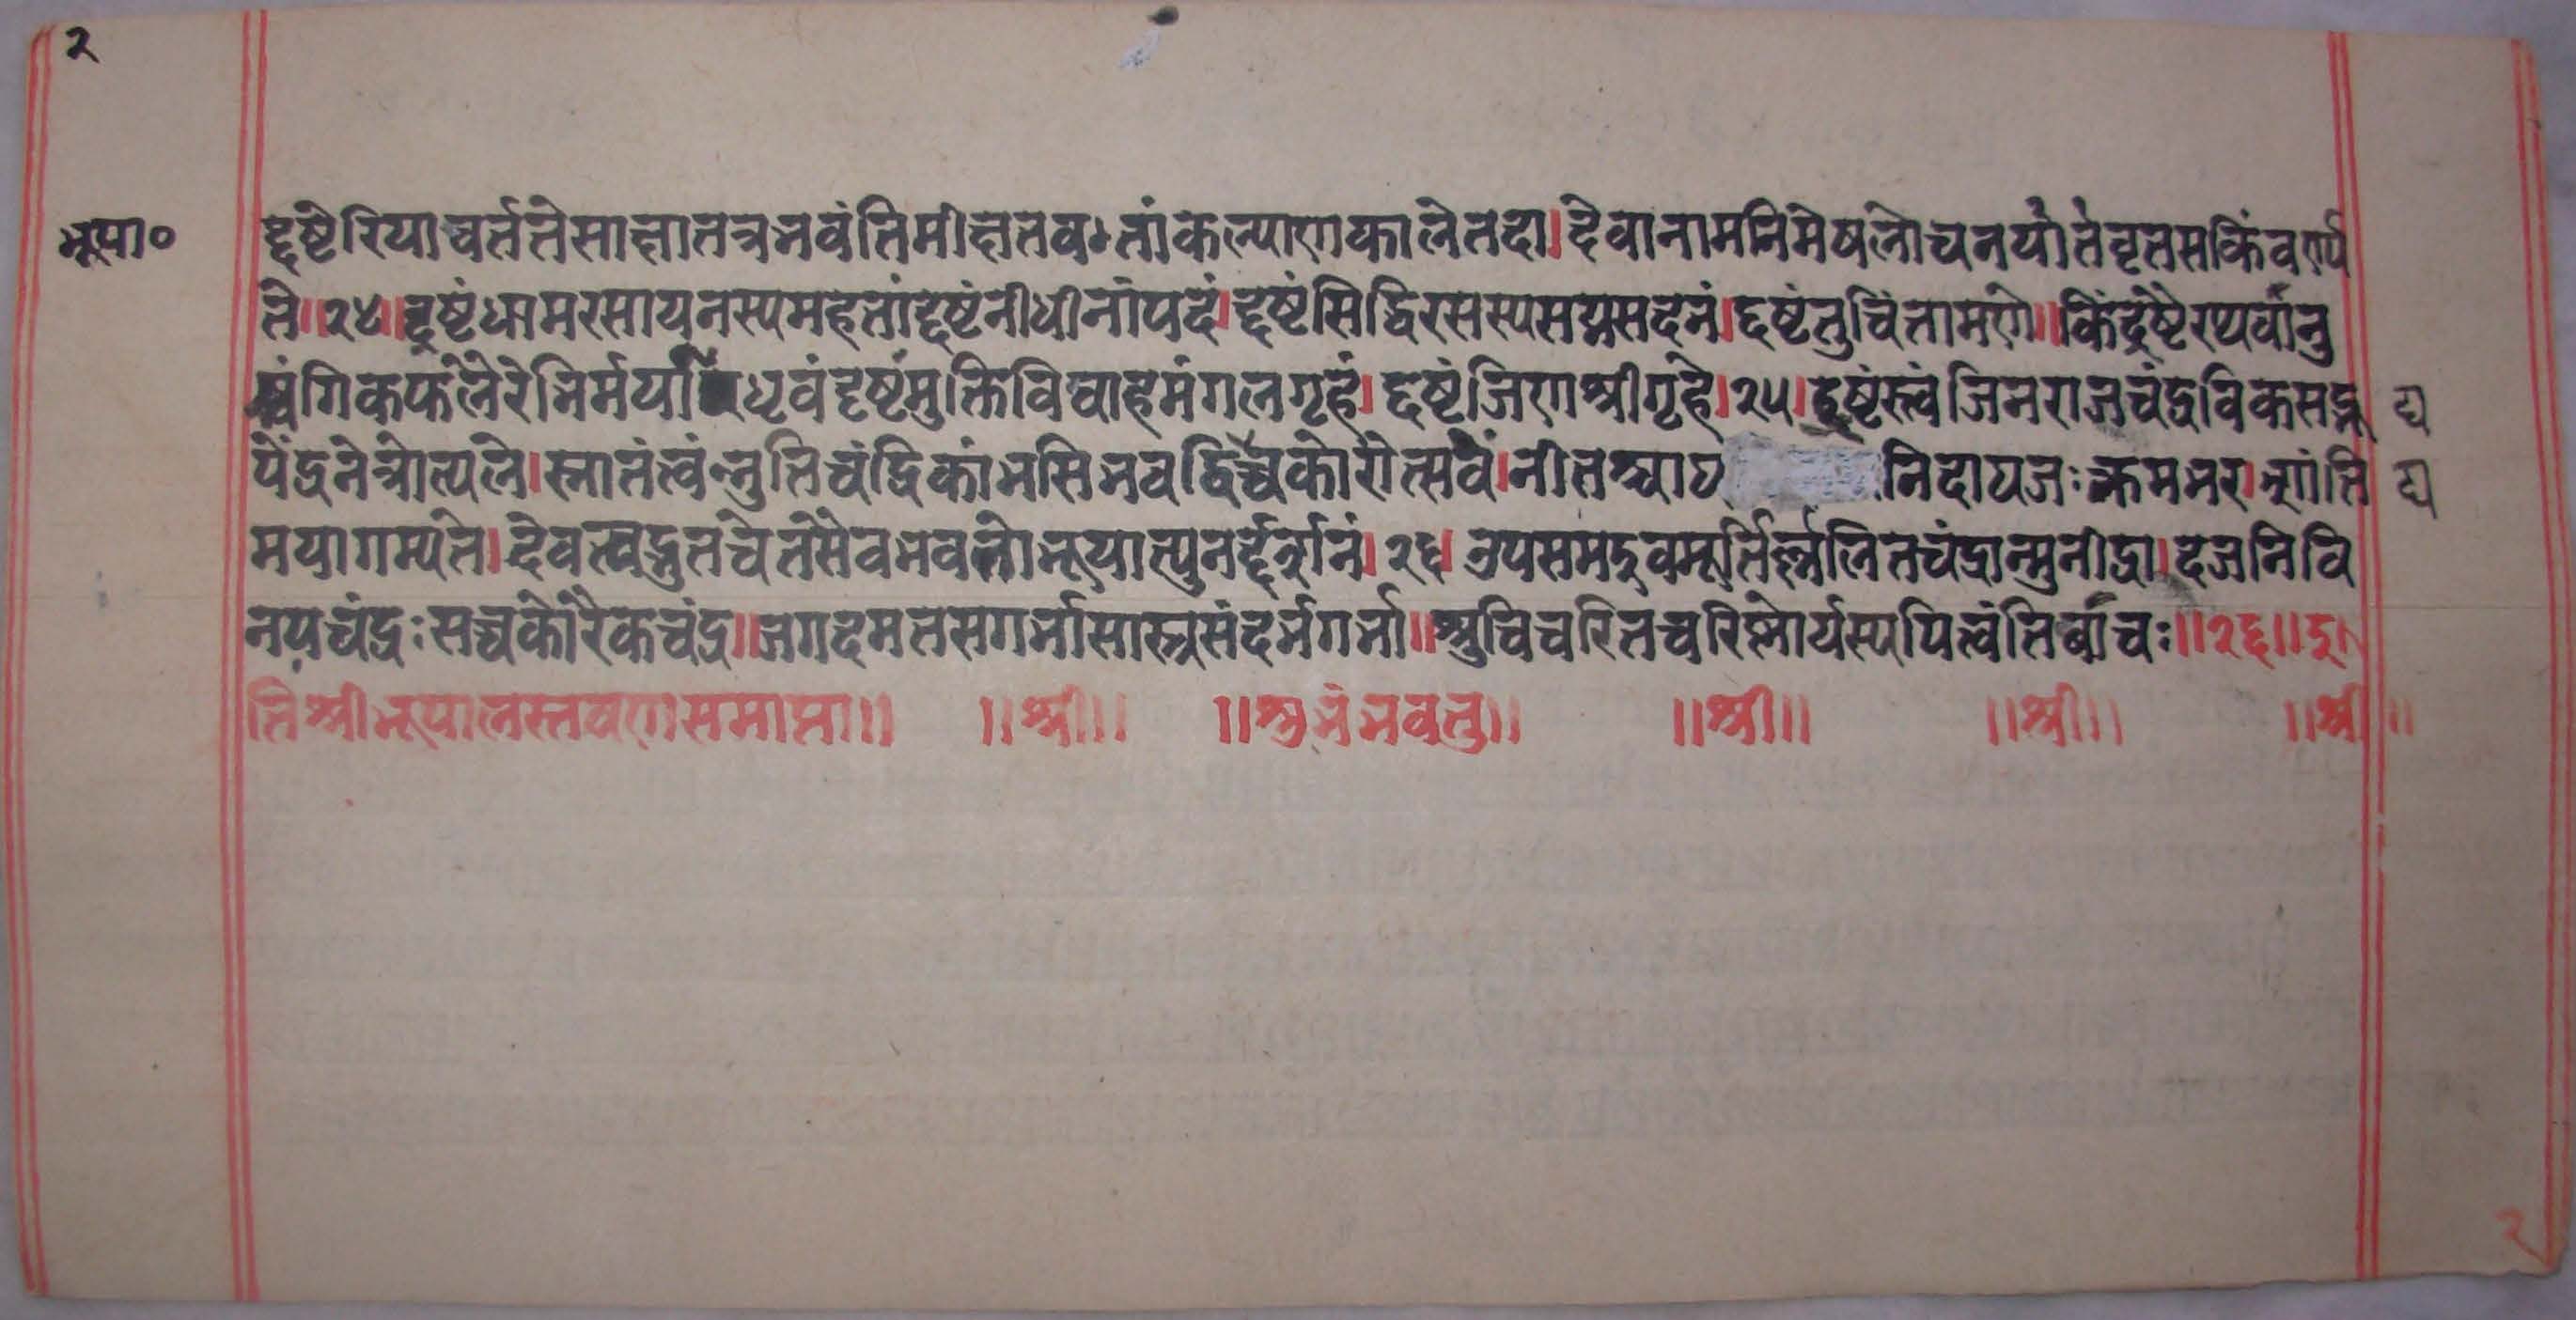 २
भूपा० दृष्टेरियाच्वर्ततेसाक्षातत्रभवंतिमीक्षतवऽतांकल्याणकालेतदा।देवानामनिमेषलोचनयांतेवृतसकिंवर्ण्य
ते॥२४॥दृष्टंधामरसायनस्यमहतांदृष्टंनीधीनांपदं।दृष्टंसिद्धिरसस्यसद्मसदनं।दृष्टंतुचिंतामणे॥किंदृष्टैरप्यर्वानु
ष्वंगिकफलैरेभिर्मर्या धृवंदृष्टंमुक्तिविवाहमंगलगृहं।दृष्टंजिणश्रीगृहे।२५।दृष्टंस्त्वंजिनराजचंद्रविकसद्भू द्य
पेंद्रनेत्रोत्पले।स्नातंत्वंन्नुतिचंद्रिकांभसिभवद्विर्च्चकोरोत्सवं।नीतश्चाघ निदाघजःक्लमभर।भूशांति द्य
मयागम्यते।देवत्वद्गुतचेतसैवभवतोभूयात्पुनर्द्दर्शनं।२६। उपसमदुवमूर्तिर्र्ज्जलितचंद्रान्मुनीद्रा।दजनिवि
नयचंद्रःसच्चकोरैकचंद्र॥जगदमतसगर्भासास्त्रसंदर्भगर्भा॥श्रुविचरितचरिश्नोर्यस्यपित्वंतिर्वाचः॥२६॥इ।
तिश्रीभूपालस्तवणसमाप्ता॥ ॥श्री॥ ॥शुभंभवतु॥ ॥श्री॥ ॥श्री॥ ॥श्री॥
२